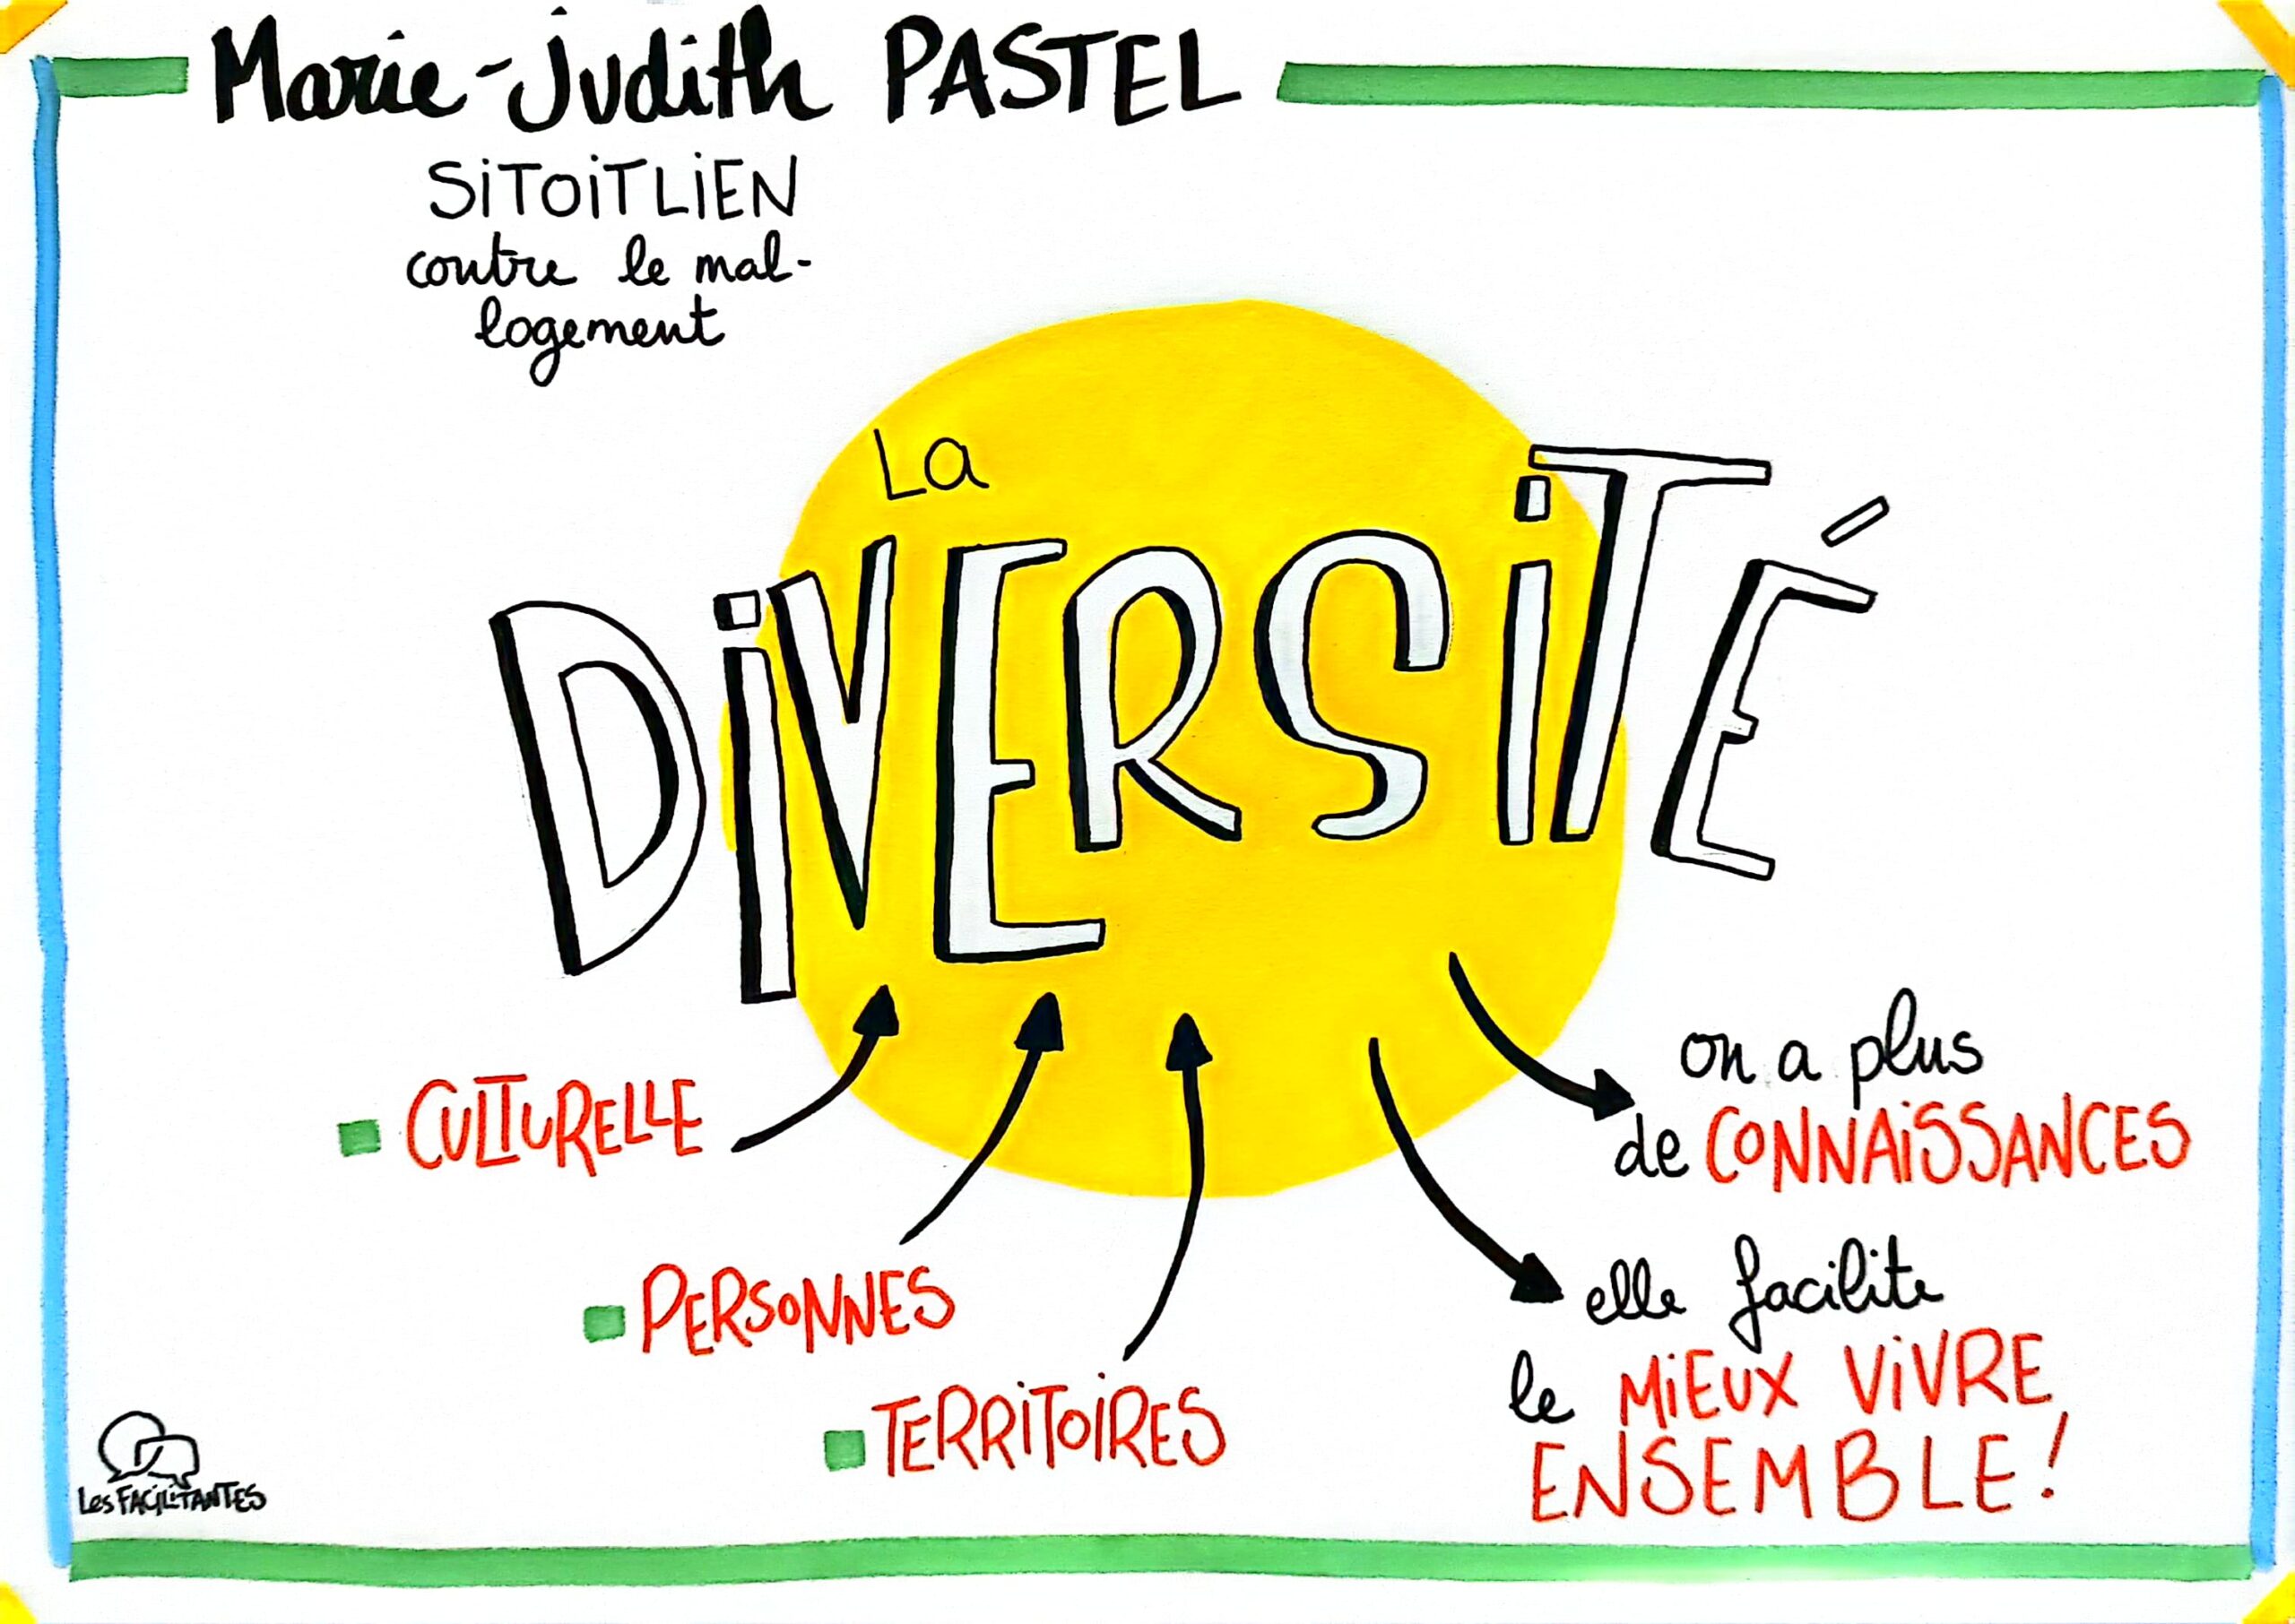 Marie-Judith PASTEL
SiTOiTLiEN
contre le mal-
logement
La
DiVERSiTÉ
CULTURELLE
PERSONNES
TERRiTOiRES
on a plus
de CONNAiSSANCES
elle facilite
le MiEUX ViVRE
ENSEMBLE!
Les FACiLiTANTES